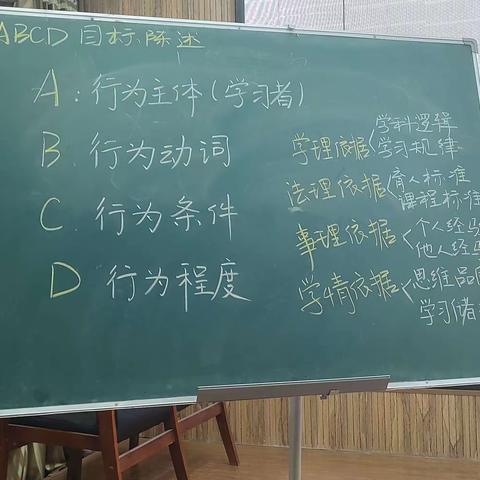 ABCD目标陈述
A：行为主体（学习者）
B. 行为动词
C. 行为条件
D 行为程度
学理依据<学科逻辑
学习规律
法理依据<育人标准
课程标准
事理依据<个人经验
他人经验
学情依据<思维品质
学习储